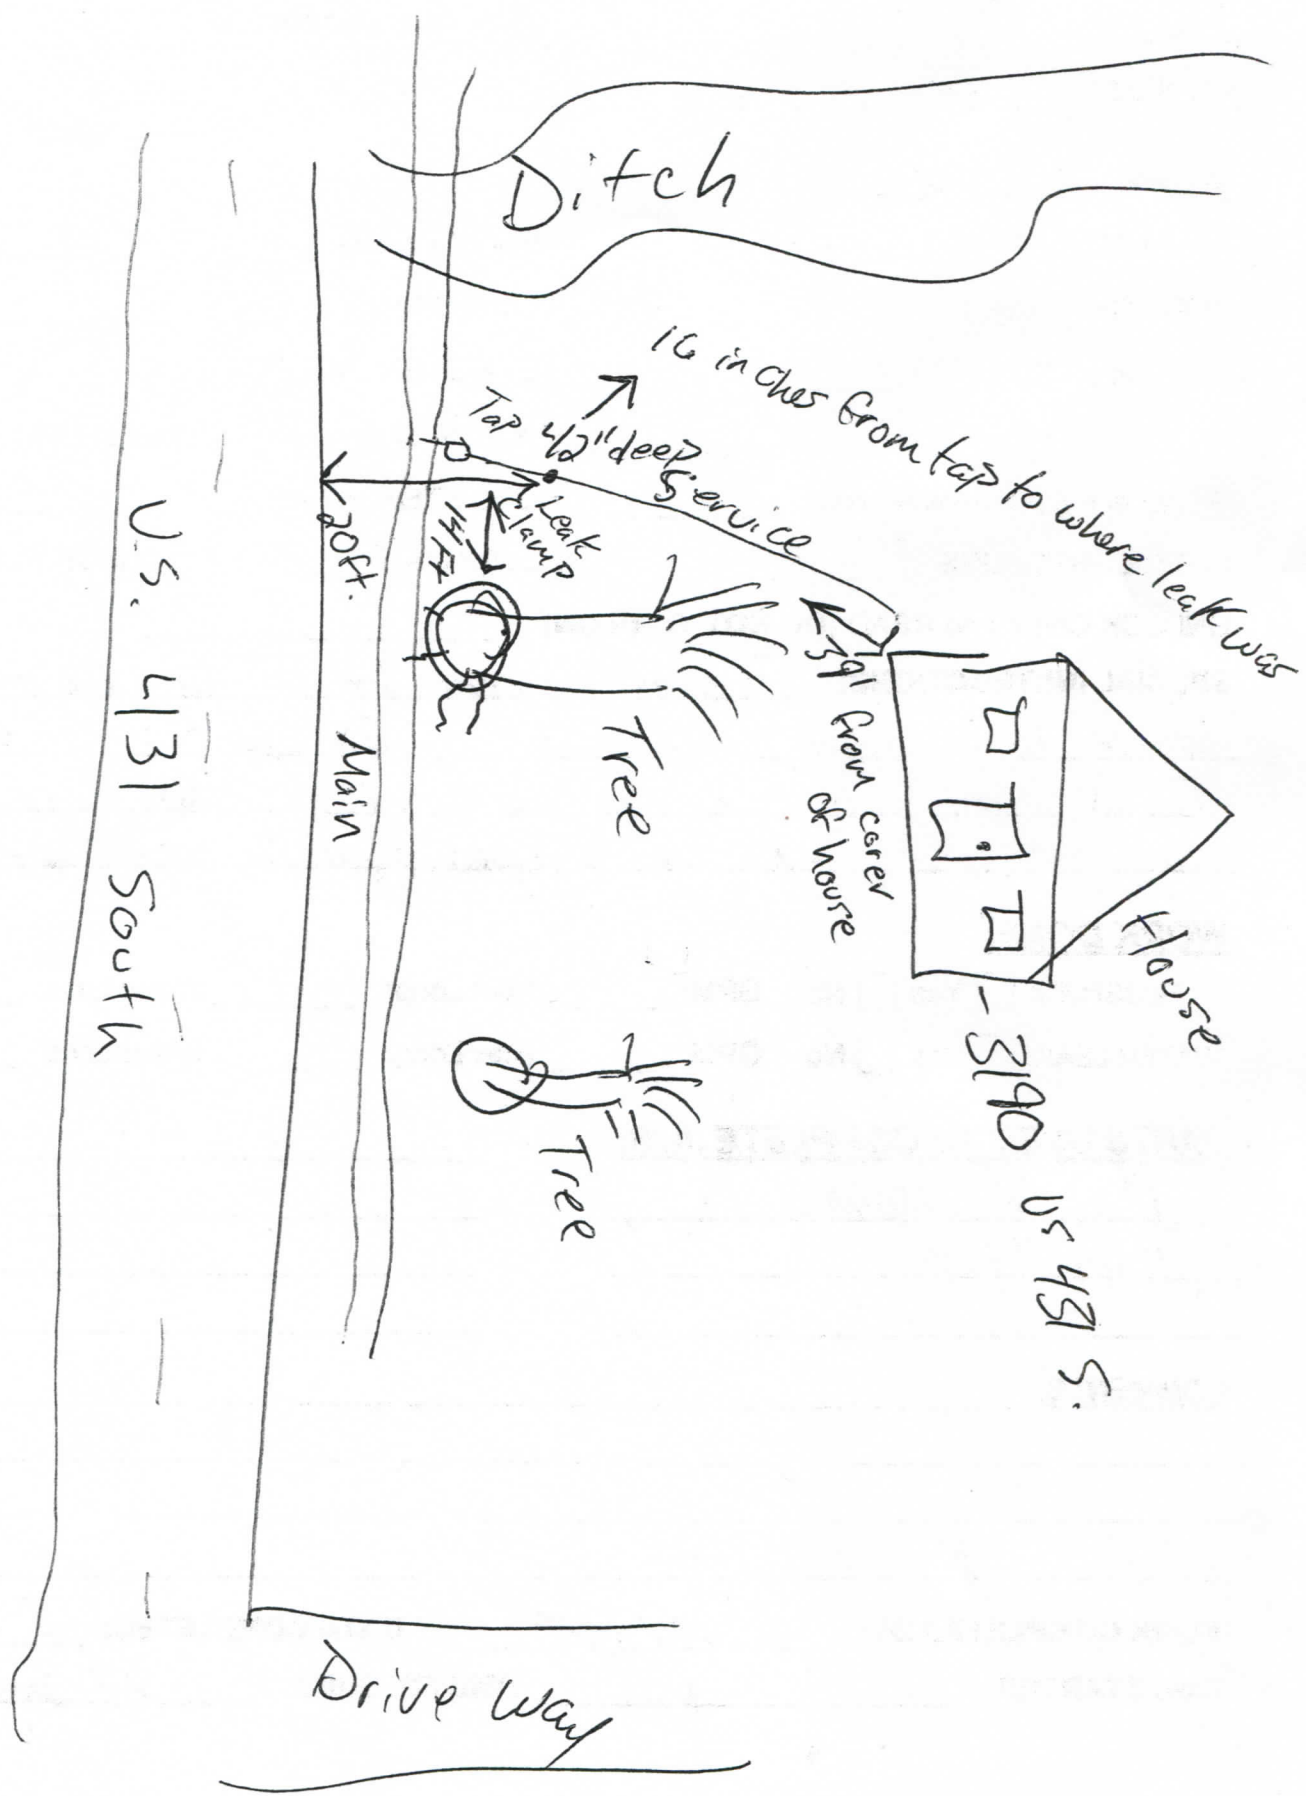 Ditch
16 inches from tap to where leak was
Tap
42" deep
Service
Leak
Clamp
20ft.
Tree
from corer
of house
House
3190 US 431 S.
Main
U.S. 431 South
Tree
Drive way